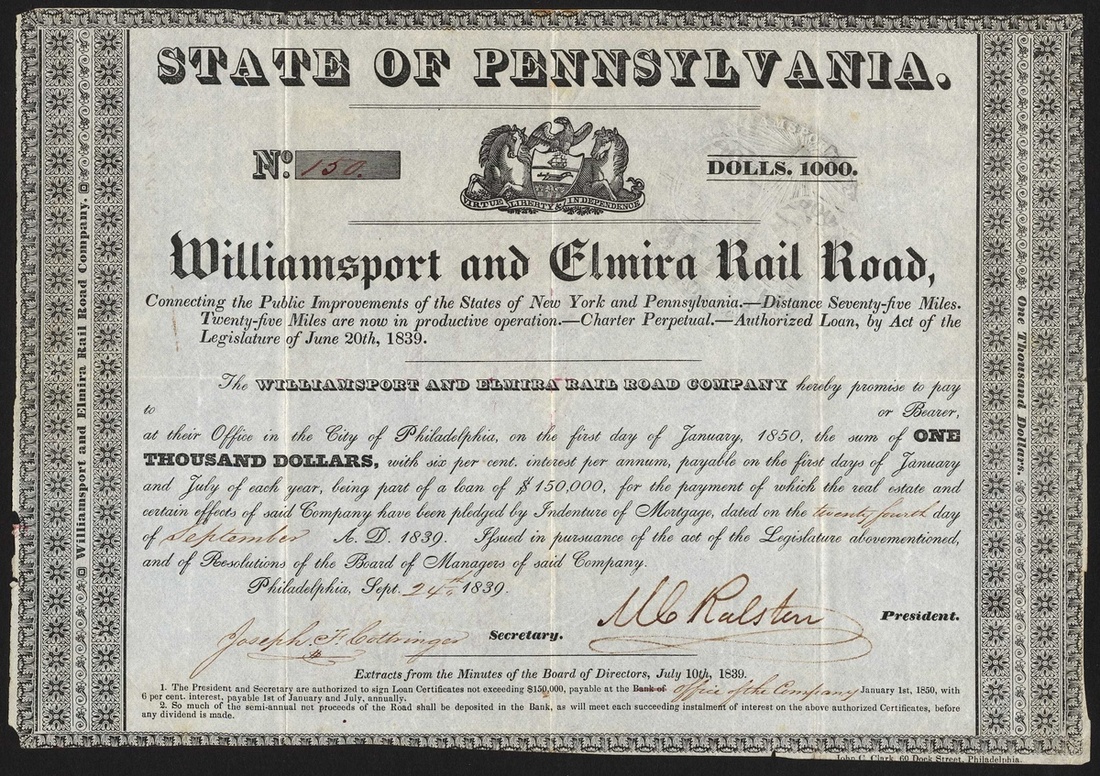 STATE OF PENNSYLVANIA.
No. 150.
VIRTUE LIBERTY & INDEPENDENCE
DOLLS. 1000.
Williamsport and Elmira Rail Road,
Connecting the Public Improvements of the States of New York and Pennsylvania.—Distance Seventy-five Miles.
Twenty-five Miles are now in productive operation.—Charter Perpetual.—Authorized Loan, by Act of the
Legislature of June 20th, 1839.
The WILLIAMSPORT AND ELMIRA RAIL ROAD COMPANY hereby promise to pay
to or Bearer,
at their Office in the City of Philadelphia, on the first day of January, 1850, the sum of ONE
THOUSAND DOLLARS, with six per cent. interest per annum, payable on the first days of January
and July of each year, being part of a loan of $150,000, for the payment of which the real estate and
certain effects of said Company have been pledged by Indenture of Mortgage, dated on the twenty fourth day
of September A. D. 1839. Issued in pursuance of the act of the Legislature abovementioned,
and of Resolutions of the Board of Managers of said Company.
Philadelphia, Sept. 24th 1839.
Joseph F. Cottringer Secretary. M C Ralston President.
Extracts from the Minutes of the Board of Directors, July 10th, 1839.
1. The President and Secretary are authorized to sign Loan Certificates not exceeding $150,000, payable at the Bank of office of the Company January 1st, 1850, with
6 per cent. interest, payable 1st of January and July, annually.
2. So much of the semi-annual net proceeds of the Road shall be deposited in the Bank, as will meet each succeeding instalment of interest on the above authorized Certificates, before
any dividend is made.
John C. Clark, 60 Dock Street, Philadelphia.
Williamsport and Elmira Rail Road Company.
One Thousand Dollars.